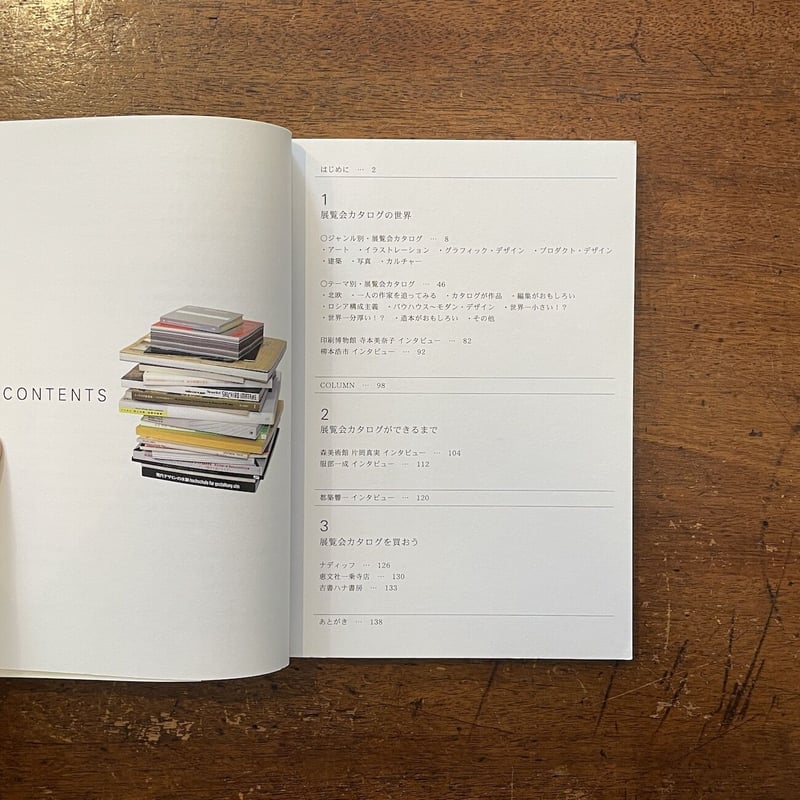 CONTENTS
現代デザインの水脈 hochschule für gestaltung ulm
はじめに … 2
1
展覧会カタログの世界
○ジャンル別・展覧会カタログ … 8
・アート ・イラストレーション ・グラフィック・デザイン ・プロダクト・デザイン
・建築 ・写真 ・カルチャー
○テーマ別・展覧会カタログ … 46
・北欧 ・一人の作家を追ってみる ・カタログが作品 ・編集がおもしろい
・ロシア構成主義 ・バウハウス〜モダン・デザイン ・世界一小さい!?
・世界一分厚い!? ・造本がおもしろい ・その他
印刷博物館 寺本美奈子 インタビュー … 82
柳本浩市 インタビュー … 92
COLUMN … 98
2
展覧会カタログができるまで
森美術館 片岡真実 インタビュー … 104
服部一成 インタビュー … 112
都築響一 インタビュー … 120
3
展覧会カタログを買おう
ナディッフ … 126
恵文社一乗寺店 … 130
古書ハナ書房 … 133
あとがき … 138